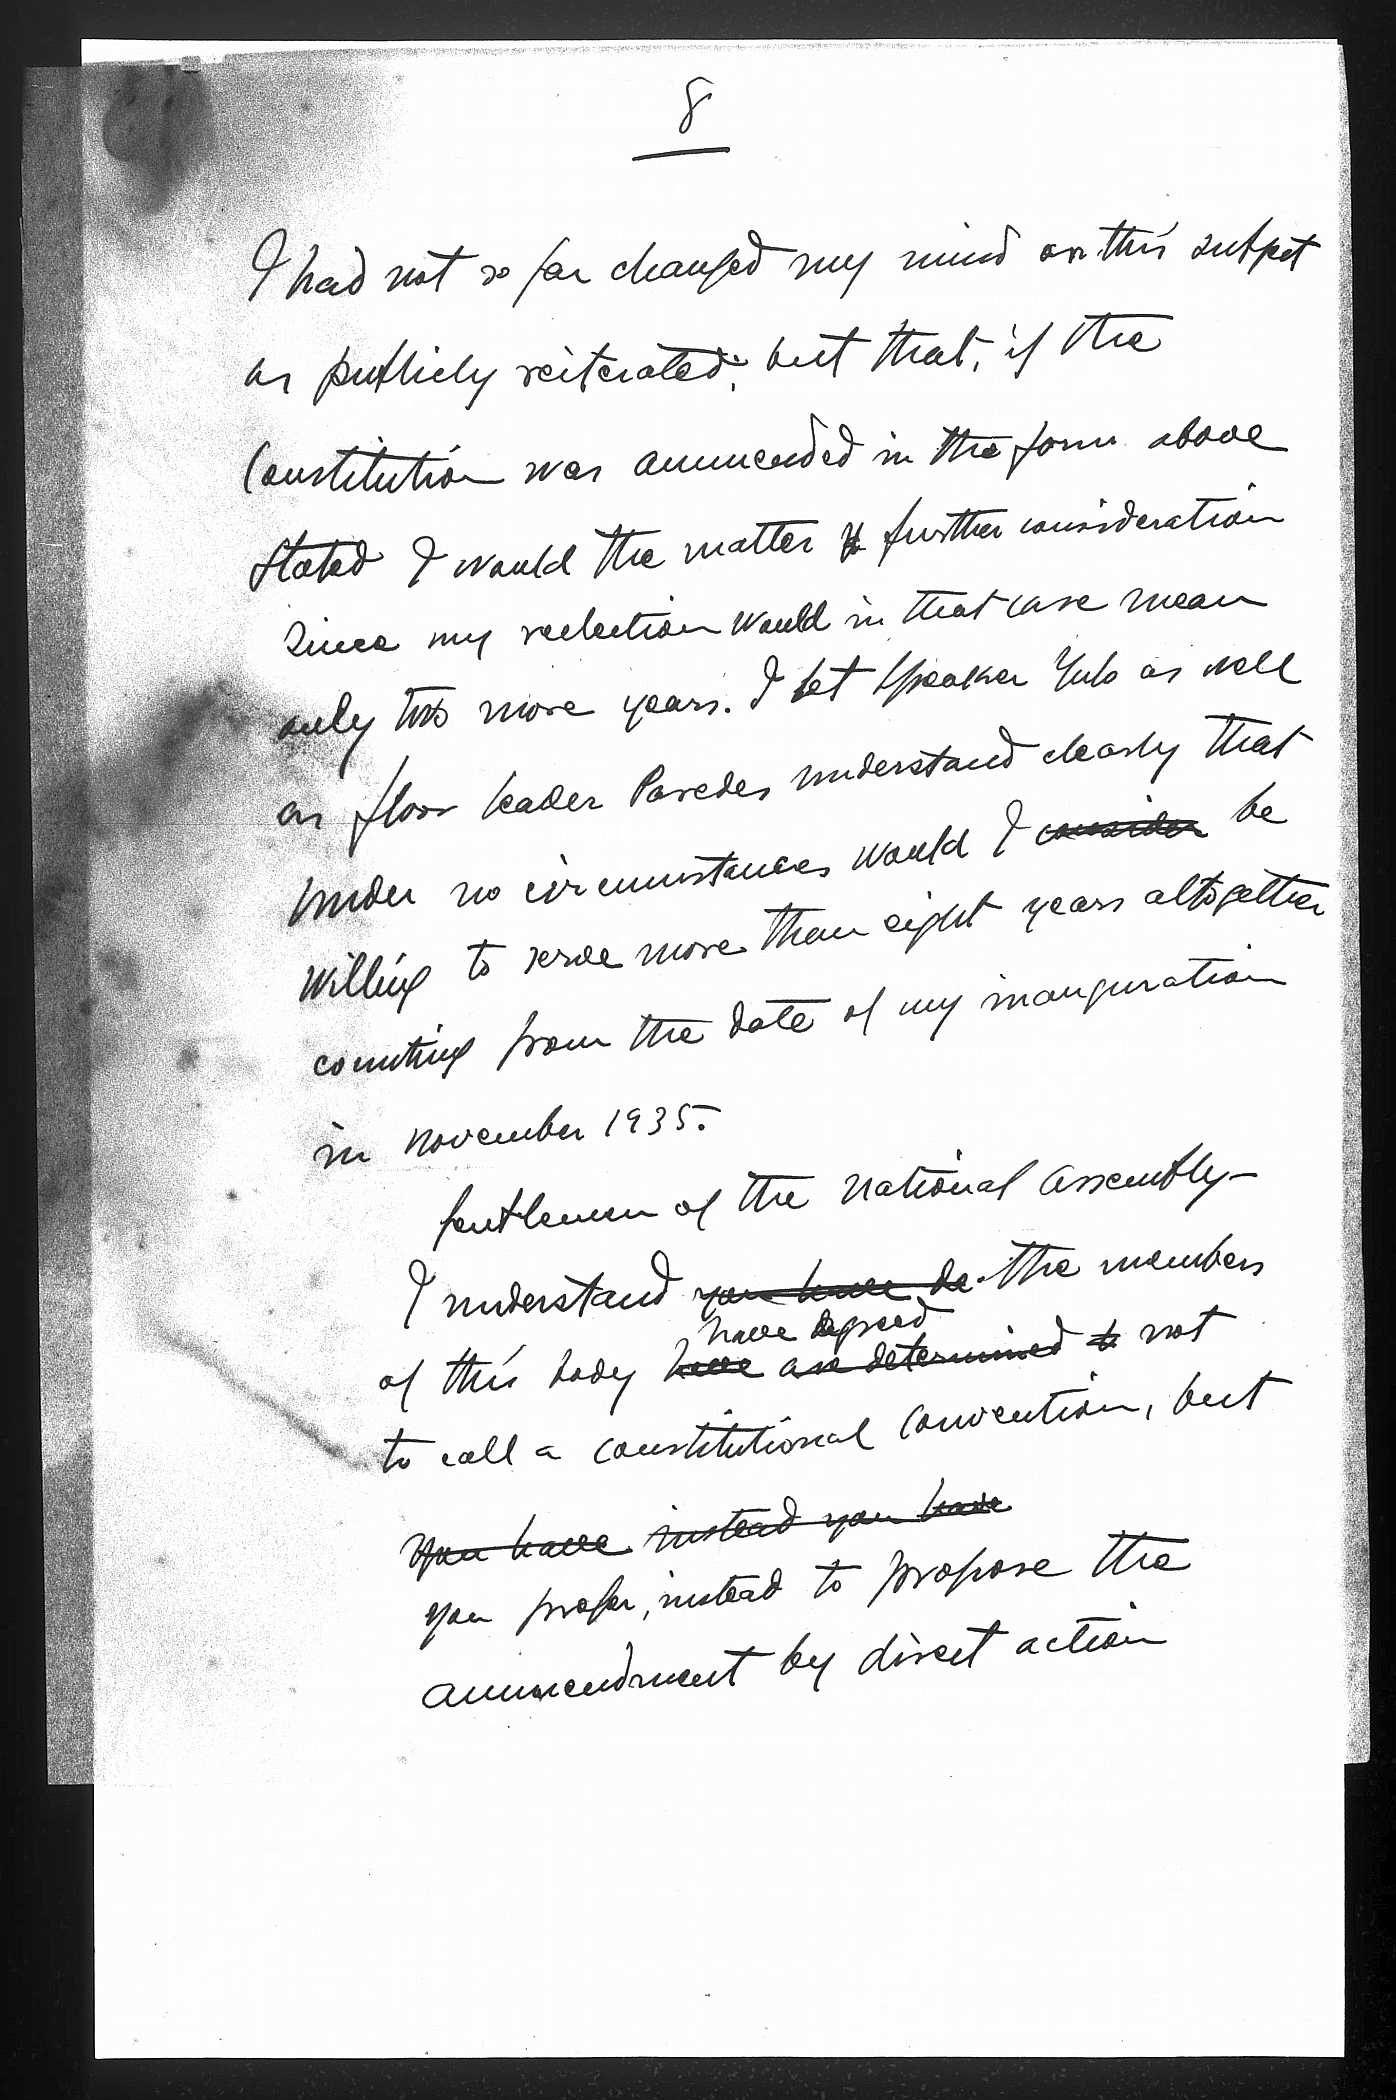 8
I had not so far changed my mind on this subject
as publicly reiterated; but that, if the
Constitution was ammended in the form above
stated I would the matter further consideration
since my reelection would in that case mean
only two more years. I let Speaker Yulo as well
as floor leader Paredes understand clearly that
under no circumstances would I consider be
willing to serve more than eight years altogether
counting from the date of my inauguration
in November 1935.
Gentlemen of the National Assembly—
I understand you have de the members
have agreed
of this body have are determined to not
to call a constitutional convention, but
you have instead you have
you prefer, instead to propose the
ammendment by direct action